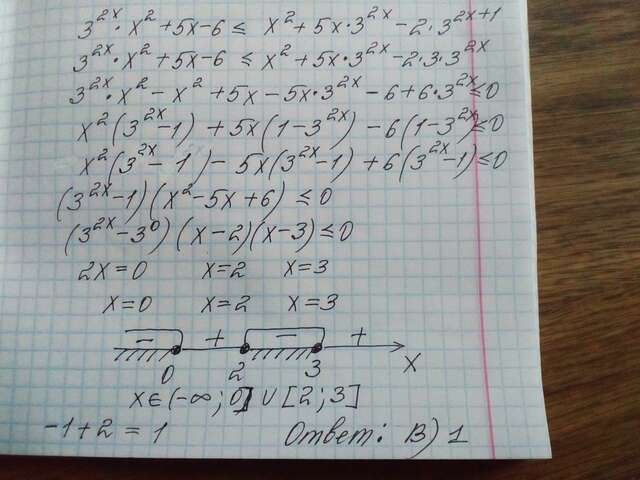 3^{2x}·x²+5x-6 ≤ x²+5x·3^{2x}-2·3^{2x+1}
3^{2x}·x²+5x-6 ≤ x²+5x·3^{2x}-2·3·3^{2x}
3^{2x}·x²-x²+5x-5x·3^{2x}-6+6·3^{2x}≤0
x²(3^{2x}-1)+5x(1-3^{2x})-6(1-3^{2x})≤0
x²(3^{2x}-1)-5x(3^{2x}-1)+6(3^{2x}-1)≤0
(3^{2x}-1)(x²-5x+6)≤0
(3^{2x}-3⁰)(x-2)(x-3)≤0
2x=0 x=2 x=3
x=0 x=2 x=3
- + - +
0 2 3 x
x∈(-∞;0]∪[2;3]
-1+2=1 Ответ: В) 1